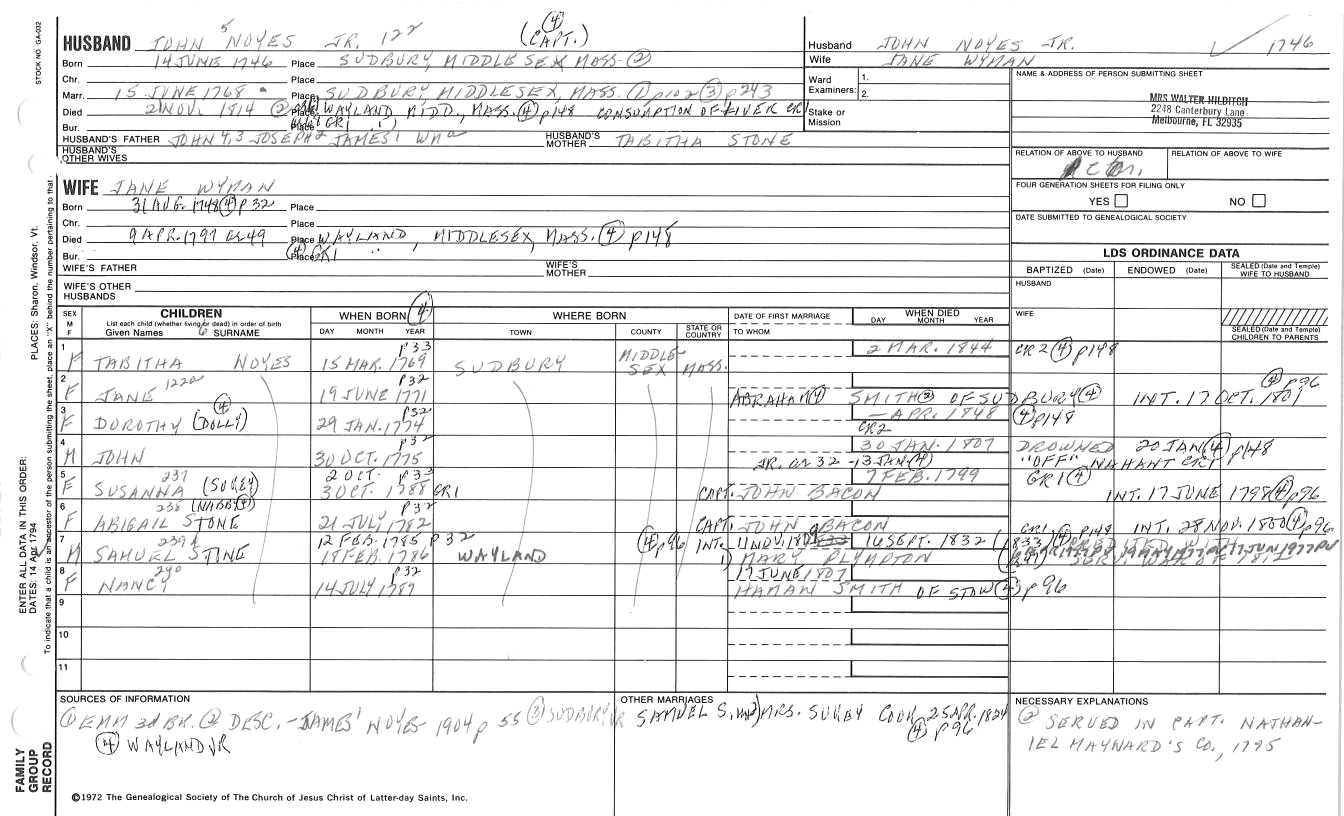 STOCK NO. GA-032
HUSBAND JOHN 5 NOYES JR. 122 (4) (CAPT.)
Born 14 JUNE 1746 Place SUDBURY, MIDDLESEX MASS. (2)
Chr. Place
Marr. 15 JUNE 1768 Place SUDBURY, MIDDLESEX, MASS. (1) p102 (3) p243
Died 21 NOV. 1814 (2) Place WAYLAND, MIDD., MASS. (4) p148 CONSUMPTION OF LIVER GR1
Bur. Place GR1
HUSBAND'S FATHER JOHN 4,3 JOSEPH2 JAMES1 Wm HUSBAND'S MOTHER TABITHA STONE
HUSBAND'S OTHER WIVES
Husband JOHN NOYES JR. 1746
Wife JANE WYMAN
Ward Examiners: 1.
2.
Stake or Mission
NAME & ADDRESS OF PERSON SUBMITTING SHEET
MRS WALTER HILDITCH
2248 Canterbury Lane
Melbourne, FL 32935
RELATION OF ABOVE TO HUSBAND RELATION OF ABOVE TO WIFE
FOUR GENERATION SHEETS FOR FILING ONLY
YES NO
DATE SUBMITTED TO GENEALOGICAL SOCIETY
WIFE JANE WYMAN
Born 31 AUG. 1748 (4) p 32 Place
Chr. Place
Died 9 APR. 1797 ae 49 Place WAYLAND, MIDDLESEX, MASS. (4) p148
Bur. Place (4) GR1
WIFE'S FATHER WIFE'S MOTHER
WIFE'S OTHER HUSBANDS
LDS ORDINANCE DATA
BAPTIZED (Date) ENDOWED (Date) SEALED (Date and Temple) WIFE TO HUSBAND
HUSBAND
WIFE
SEALED (Date and Temple) CHILDREN TO PARENTS
SEX M F
CHILDREN
List each child (whether living or dead) in order of birth
Given Names 6 SURNAME
WHEN BORN (4)
DAY MONTH YEAR
WHERE BORN
TOWN COUNTY STATE OR COUNTRY
DATE OF FIRST MARRIAGE
TO WHOM
WHEN DIED
DAY MONTH YEAR
1 F TABITHA NOYES 15 MAR. 1769 p33 SUDBURY MIDDLE-SEX MASS. 2 MAR. 1844 GR2 (4) p148
2 F JANE 122a 19 JUNE 1771 p32 ABRAHAM (4) SMITH (3) OF SUDBURY (4) INT. 17 OCT. 1801 (4) p96
3 F DOROTHY (DOLLY) (4) 29 JAN. 1774 p32 — APR. 1848 (4) p148 GR2
4 M JOHN 30 OCT. 1775 p32 30 JAN. 1807 DROWNED 20 JAN (4) p148
JR. ae 32 -13 JAN (4) "OFF" NAHANT GR1
5 F SUSANNA 237 (SUKEY) 2 OCT. p33 3 OCT. 1788 GR1 CAPT. JOHN BACON 7 FEB. 1799 GR1 (4) INT. 17 JUNE 1798 (4) p96
6 F ABIGAIL STONE 238 (NABBY (4)) 21 JULY 1782 p32 CAPT. JOHN BACON GR1 (4) p148 INT. 28 NOV. 1800 (4) p96
7 M SAMUEL STINE 239 12 FEB. 1785 p32 18 FEB. 1786 WAYLAND (4) p96 INT. 11 NOV. 1809 16 SEPT. 1832 (1833
1) MARY PLYMPTON SERV. WAR OF 1812
8 F NANCY 240 14 JULY 1789 p32 17 JUNE 1807 HAMAN SMITH OF STOW (4) p96
9
10
11
SOURCES OF INFORMATION
(1) EMM 3d BR. (2) DESC. - JAMES1 NOYES 1904 p 55 (3) SUDBURY VR
(4) WAYLAND VR
OTHER MARRIAGES
SAMUEL S. m 2) MRS. SUKEY COOK 25 APR. 1824
(4) p96
NECESSARY EXPLANATIONS
(2) SERVED IN CAPT. NATHAN-
IEL MAYNARD'S CO., 1775
ENTER ALL DATA IN THIS ORDER:
DATES: 14 Apr 1794 PLACES: Sharon, Windsor, Vt.
To indicate that a child is an ancestor of the person submitting the sheet, place an "X" behind the number pertaining to that
FAMILY GROUP RECORD
©1972 The Genealogical Society of The Church of Jesus Christ of Latter-day Saints, Inc.